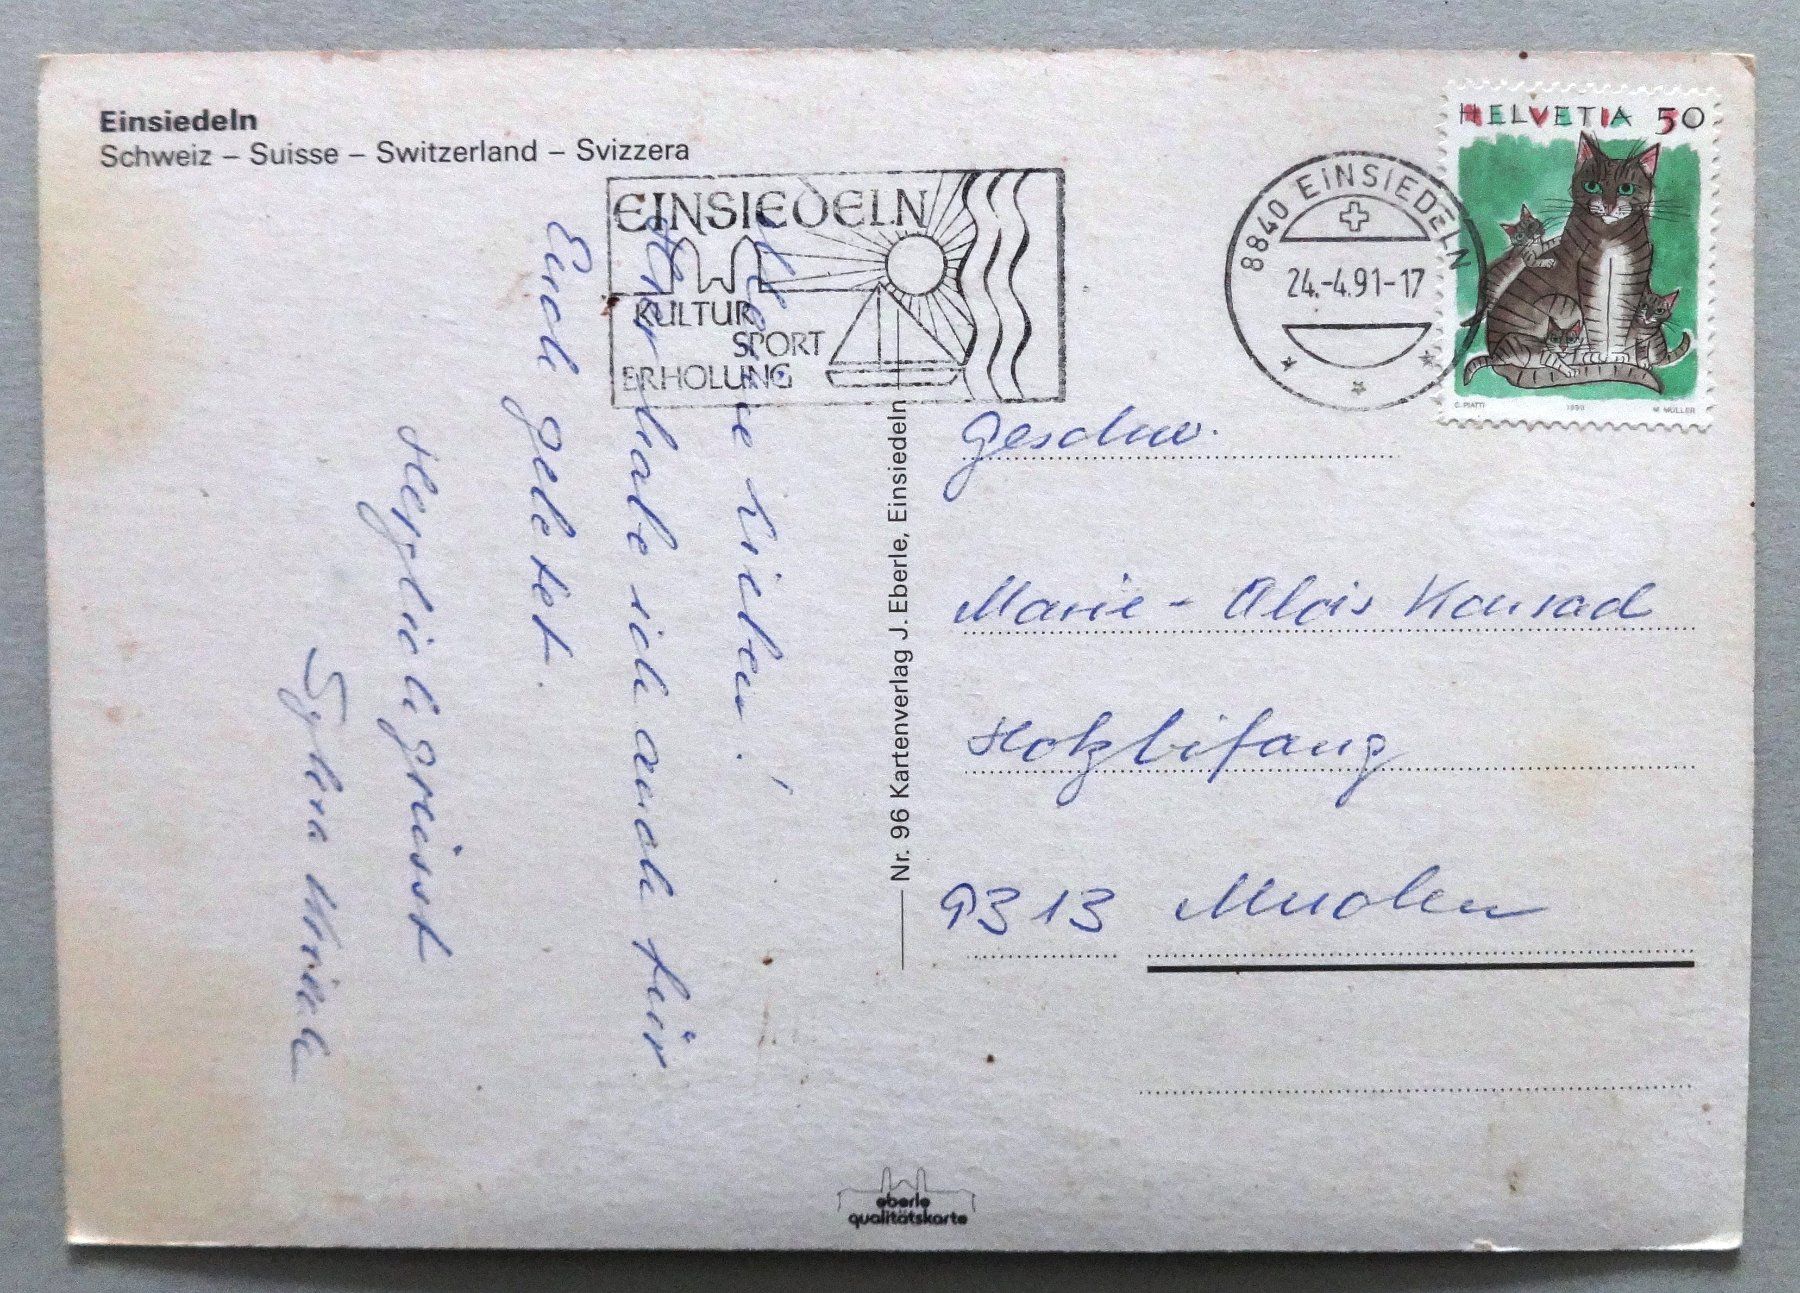 Einsiedeln
Schweiz – Suisse – Switzerland – Svizzera
EINSIEDELN
KULTUR
SPORT
ERHOLUNG
8840 EINSIEDELN
24.-4.91-17
HELVETIA 50
C. PIATTI 1990 M. MÜLLER
Meine Lieben!
Hier habe ich auch für
Euch gebetet.
Herzlich grüsst
Sylvia
Nr. 96 Kartenverlag J. Eberle, Einsiedeln
Geschw.
Marie - Alois Konrad
Holzbifang
9313 Muolen
eberle
qualitätskarte